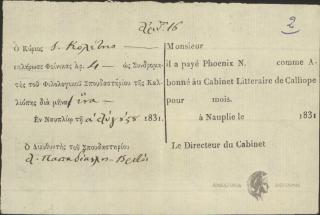 Ἀριθ. 16
2
Ὁ Κύριος Ι. Κωλέτης
ἐπλήρωσε Φοίνικας ἀρ. 4 ὡς Συνδρομη-
τὴς τοῦ Φιλολογικοῦ Σπουδαστηρίου τῆς Καλ-
λιόπης διὰ μῆνα ἕνα
Ἐν Ναυπλίῳ τῇ 1831.
Ὁ Διευθυντὴς τοῦ Σπουδαστηρίου
Monsieur
il a payé Phoenix N. comme A-
bonné au Cabinet Litteraire de Calliope
pour mois.
à Nauplie le 1831
Le Directeur du Cabinet